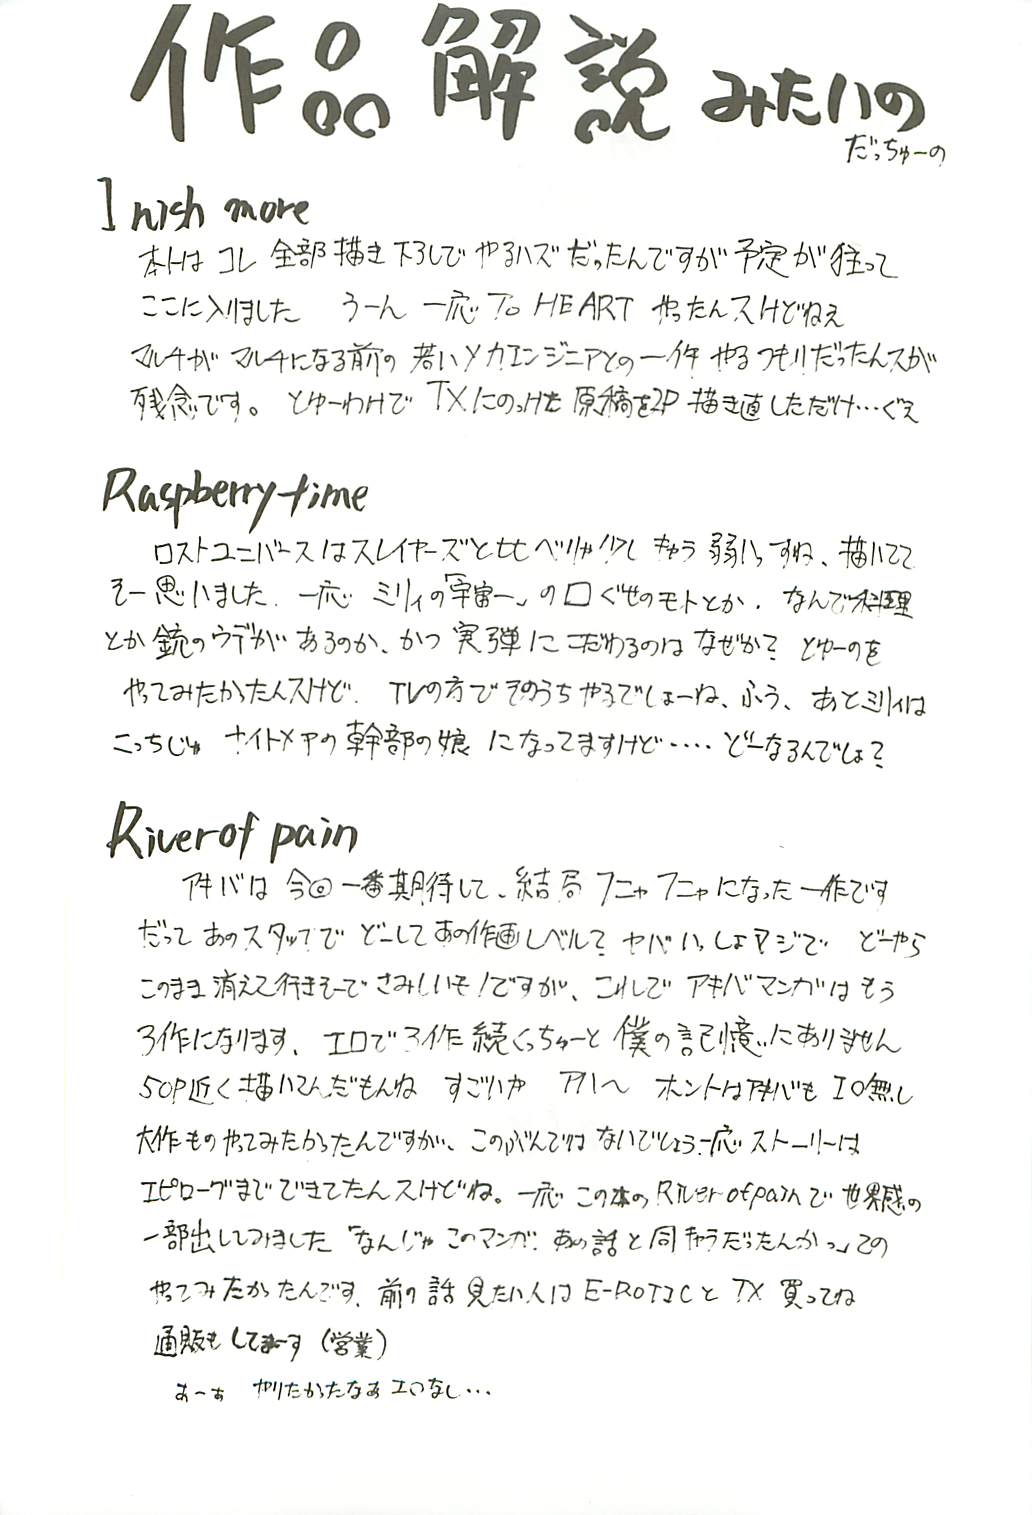 作品解説みたいの
だっちゅーの
I wish more
本トは コレ 全部描き下ろしで やるハズだったんですが 予定が狂って
ここに入りました うーん 一応 To HEART やったんスけどねえ
マルチが マルチになる前の 若いメカエンジニアとの一件 やるつもりだったんスが
残念です。 とゆーわけで TXにのっけた 原稿を2P 描き直しただけ…ぐえ
Raspberry time
ロストユニバースはスレイヤーズと比べりゃ少し キャラ 弱いっすね、描いてて
そー思いました. 一応 ミリィの「宇宙一」の口ぐせのモトとか. なんで料理
とか 銃のウデが あるのか、かつ 実弾に こだわるのは なぜか? とゆーのを
やってみたかったんスけど. TVの方で そのうち やるでしょーね、ふう、あとミリィは
こっちじゃ ナイトメアの幹部の娘 になってますけど‥‥ どーなるんでしょ?
River of pain
アキバは 今回一番期待して、結局 フニャフニャになった一作です
だって あのスタッフで どーしてあの作画レベル? ヤバいっしょマジで どーやら
このまま 消えて行きそーで さみしいモノですが、これで アキバマンガはもう
3作になります、エロで3作 続くっちゅーと 僕の記憶にありません
50P近く描いてんだもんね すごいや アハハ ホントはアキバも エロ無し
大作ものやってみたかったんですが、このぶんでは ないでしょう.一応 ストーリーは
エピローグまで できてたんスけどね。一応 この本の River of painで 世界感の
一部出してみました「なんじゃ このマンガ. あの話と同キャラだったんかっ」ての
やってみたかったんです. 前の話 見たい人は E-ROTIC と TX 買ってね
通販も してまーす (営業)
あーぁ やりたかったなぁ エロなし…